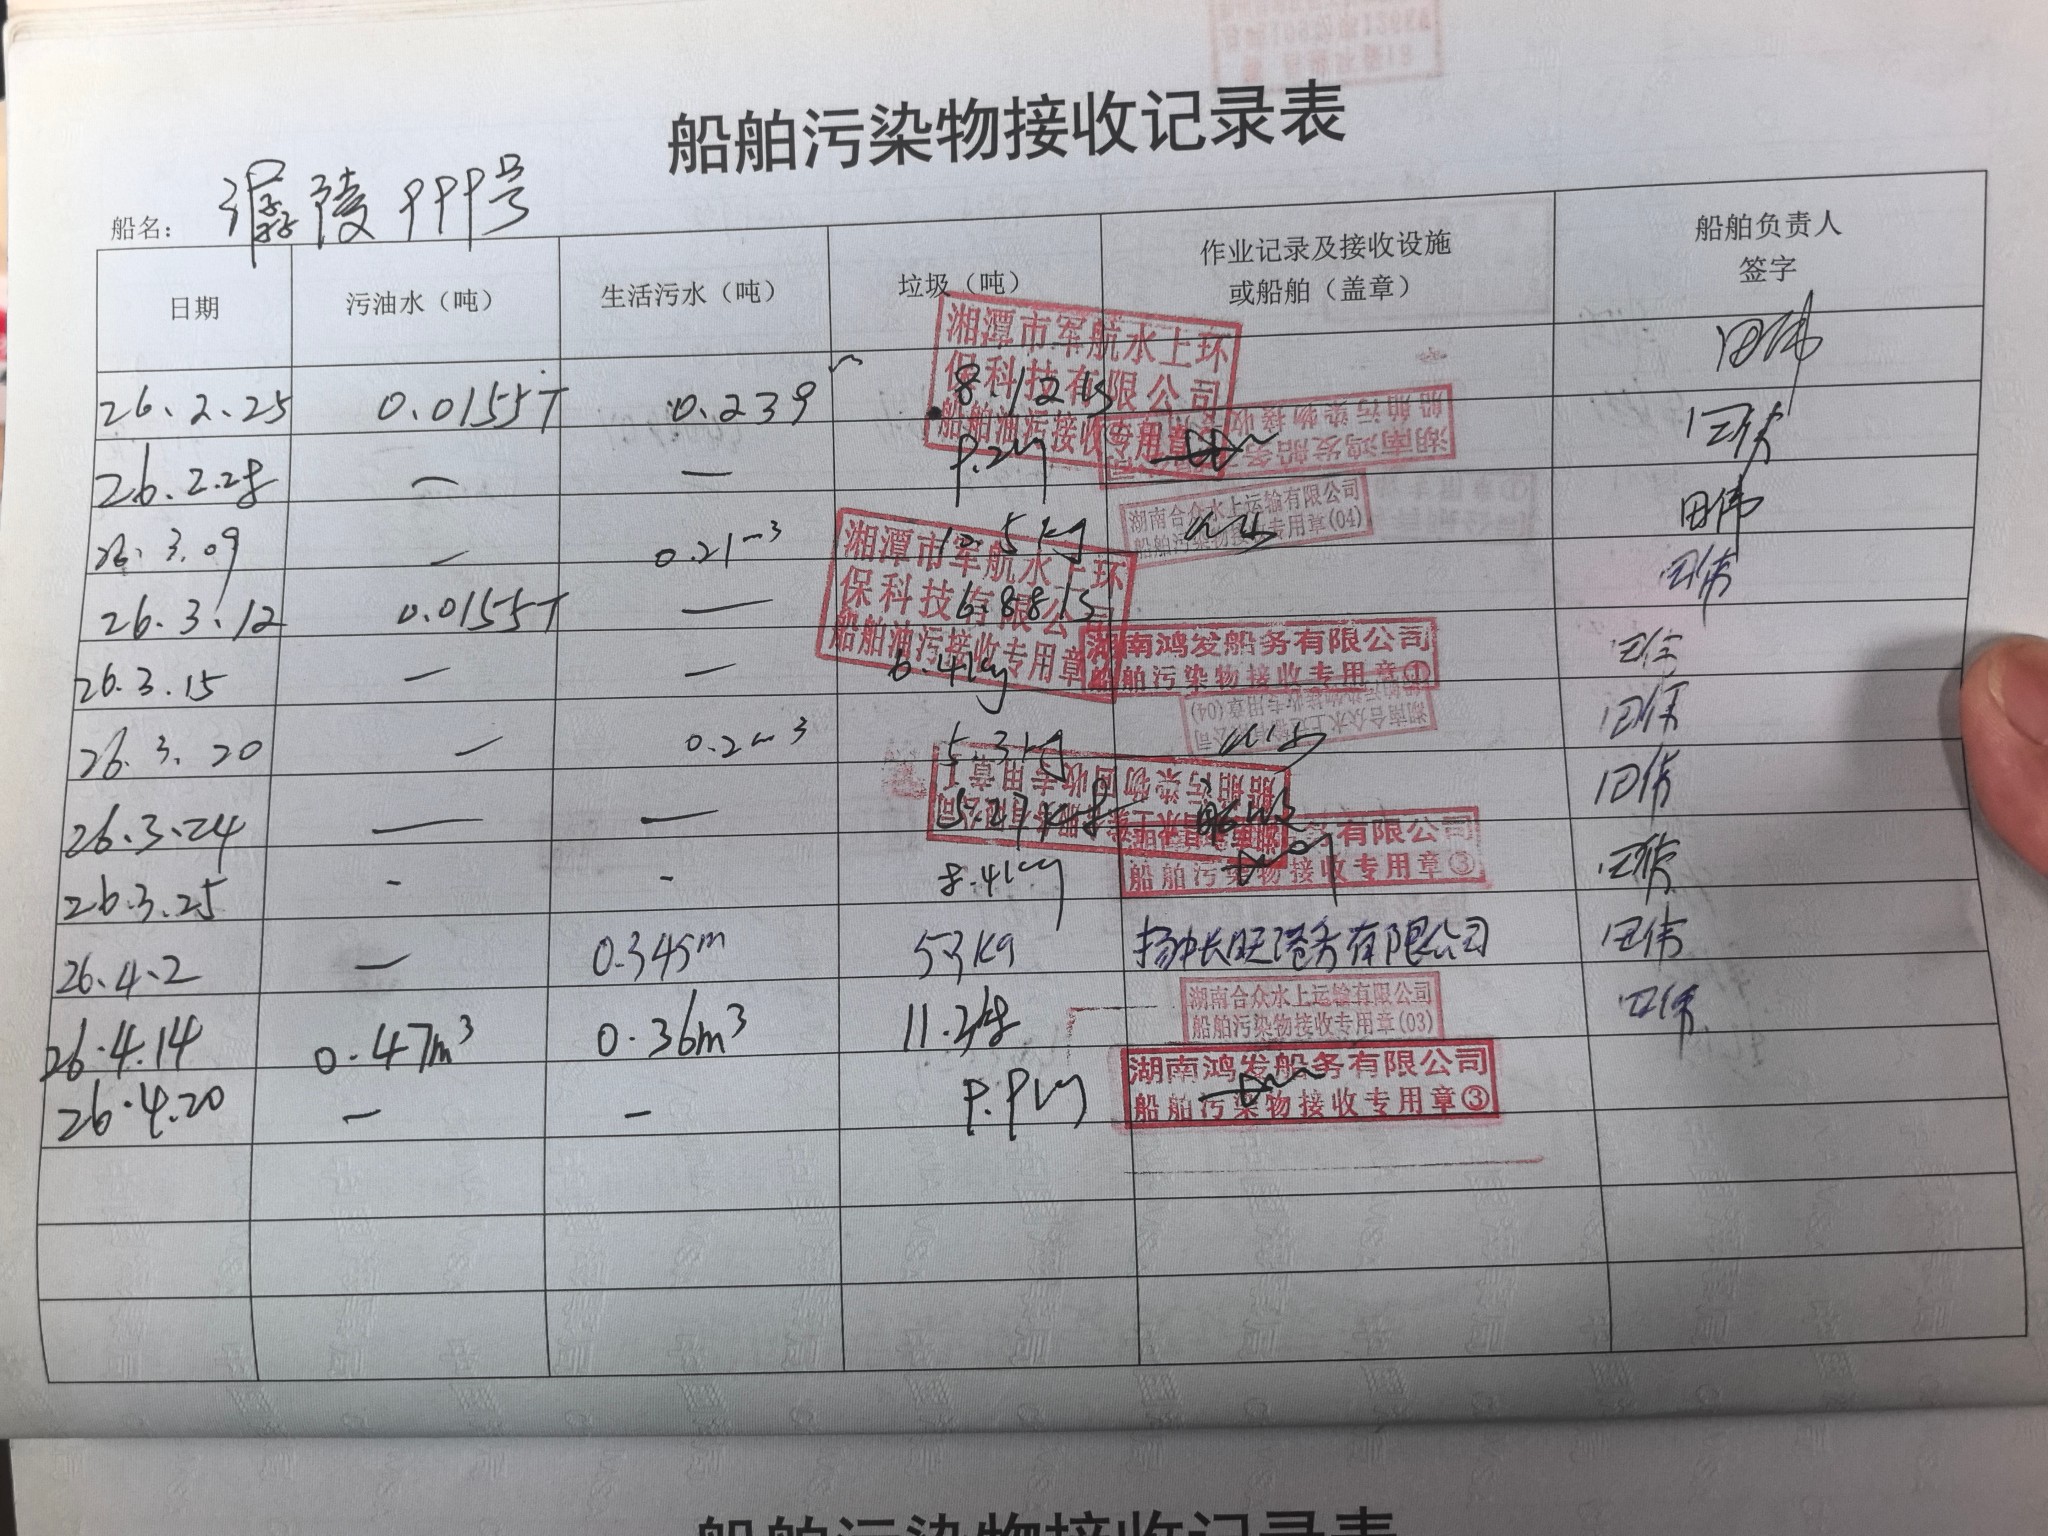 船舶污染物接收记录表
船名： 陵999号
日期 污油水（吨） 生活污水（吨） 垃圾（吨） 作业记录及接收设施或船舶（盖章） 船舶负责人签字
湘潭市军航水上环
保科技有限公司
船舶油污接收专用章
26.2.25 0.0155T 0.239 8.12 田伟
26.2.28 — — 9.2kg 田伟
湖南鸿发船务有限公司
船舶污染物接收专用章
湖南合众水上运输有限公司
船舶污染物接收专用章(04)
26.3.09 — 0.21m³ 5kg 田伟
湘潭市军航水上环
保科技有限公司
船舶油污接收专用章
26.3.12 0.0155T — 6.88 田伟
湖南鸿发船务有限公司
船舶污染物接收专用章①
26.3.15 — — 6.4kg 田伟
湖南合众水上运输有限公司
船舶污染物接收专用章(04)
26.3.20 — 0.2m³ 5.3kg 田伟
船舶污染物回收专用章
26.3.24 — — 田伟
务有限公司
船舶污染物接收专用章③
26.3.25 - - 8.4kg 田伟
26.4.2 — 0.345m 53kg 扬中长旺港务有限公司 田伟
湖南合众水上运输有限公司
船舶污染物接收专用章(03)
26.4.14 0.47m³ 0.36m³ 11.2 田伟
湖南鸿发船务有限公司
船舶污染物接收专用章③
26.4.20 — — 9.9kg
船舶污染物接收记录表